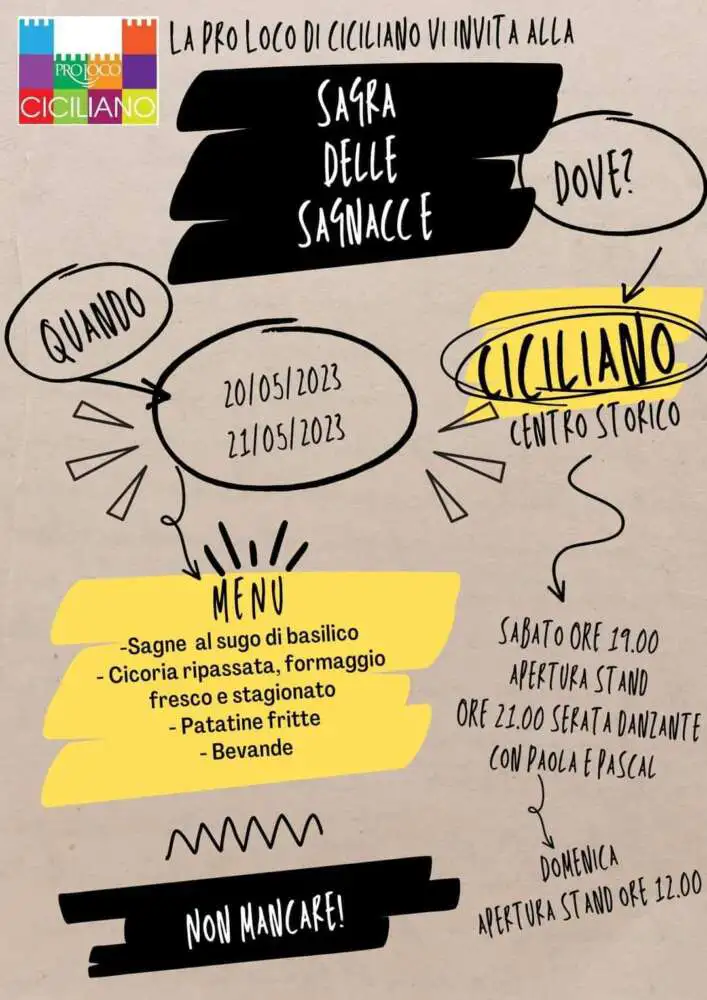 PRO LOCO
CICILIANO
LA PRO LOCO DI CICILIANO VI INVITA ALLA
SAGRA
DELLE
SAGNACCE
DOVE?
QUANDO
20/05/2023
21/05/2023
CICILIANO
CENTRO STORICO
MENU
-Sagne al sugo di basilico
- Cicoria ripassata, formaggio
fresco e stagionato
- Patatine fritte
- Bevande
SABATO ORE 19.00
APERTURA STAND
ORE 21.00 SERATA DANZANTE
CON PAOLA E PASCAL
DOMENICA
APERTURA STAND ORE 12.00
NON MANCARE!